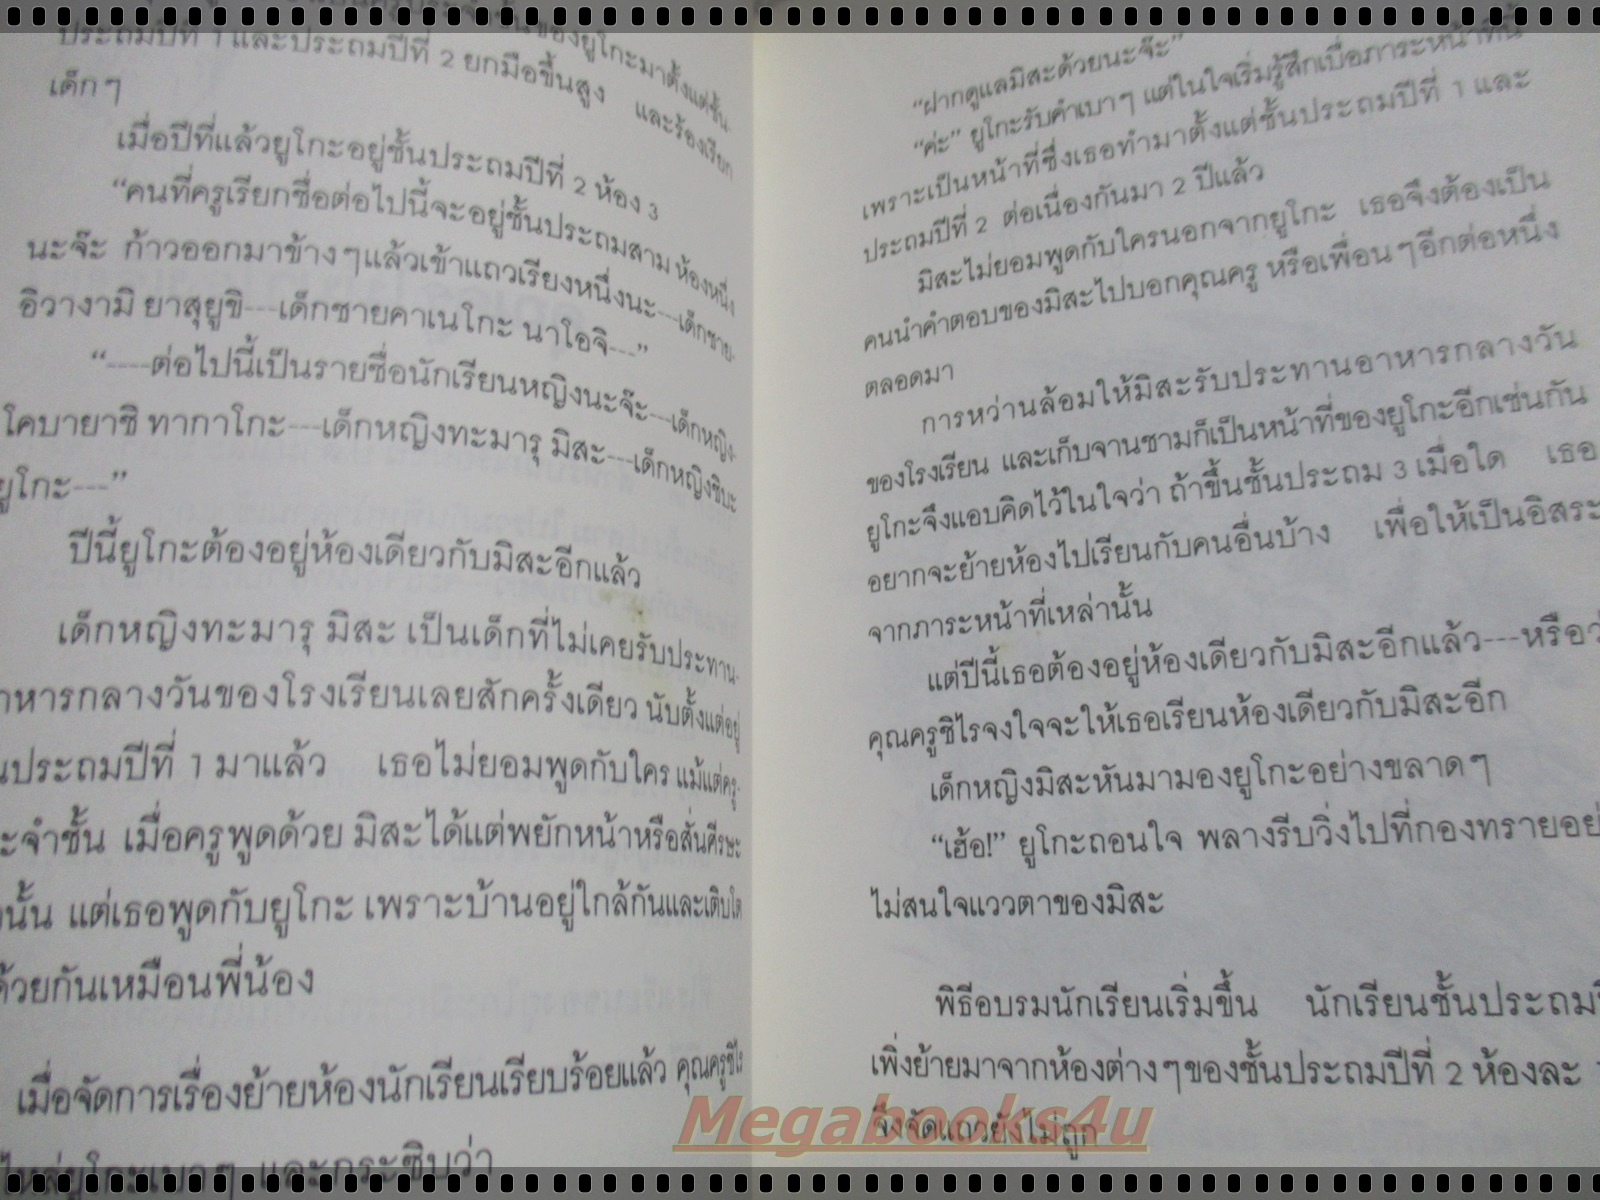 ของยูโกะมาตั้งแต่ชั้น-
ประถมปีที่ 1 และประถมปีที่ 2 ยกมือขึ้นสูง และร้องเรียก
เด็กๆ
เมื่อปีที่แล้วยูโกะอยู่ชั้นประถมปีที่ 2 ห้อง 3
“คนที่ครูเรียกชื่อต่อไปนี้จะอยู่ชั้นประถมสาม ห้องหนึ่ง
นะจ๊ะ ก้าวออกมาข้างๆแล้วเข้าแถวเรียงหนึ่งนะ---เด็กชาย-
อิวางามิ ยาสุยูขิ---เด็กชายคาเนโกะ นาโอจิ---”
“----ต่อไปนี้เป็นรายชื่อนักเรียนหญิงนะจ๊ะ---เด็กหญิง-
โคบายาชิ ทากาโกะ---เด็กหญิงทะมารุ มิสะ---เด็กหญิงชิบะ
ยูโกะ---”
ปีนี้ยูโกะต้องอยู่ห้องเดียวกับมิสะอีกแล้ว
เด็กหญิงทะมารุ มิสะ เป็นเด็กที่ไม่เคยรับประทาน-
าหารกลางวันของโรงเรียนเลยสักครั้งเดียว นับตั้งแต่อยู่
นประถมปีที่ 1 มาแล้ว เธอไม่ยอมพูดกับใคร แม้แต่ครู-
ะจำชั้น เมื่อครูพูดด้วย มิสะได้แต่พยักหน้าหรือสั่นศีรษะ
นั้น แต่เธอพูดกับยูโกะ เพราะบ้านอยู่ใกล้กันและเติบโต
ด้วยกันเหมือนพี่น้อง
เมื่อจัดการเรื่องย้ายห้องนักเรียนเรียบร้อยแล้ว คุณครูชิไร
ไหล่ยูโกะเบาๆ และกระซิบว่า
“ฝากดูแลมิสะด้วยนะจ๊ะ”
“ค่ะ” ยูโกะรับคำเบาๆ แต่ในใจเริ่มรู้สึกเบื่อภาระหน้าที่นี้
เพราะเป็นหน้าที่ซึ่งเธอทำมาตั้งแต่ชั้นประถมปีที่ 1 และ
ประถมปีที่ 2 ต่อเนื่องกันมา 2 ปีแล้ว
มิสะไม่ยอมพูดกับใครนอกจากยูโกะ เธอจึงต้องเป็น
คนนำคำตอบของมิสะไปบอกคุณครู หรือเพื่อนๆอีกต่อหนึ่ง
ตลอดมา
การหว่านล้อมให้มิสะรับประทานอาหารกลางวัน
ของโรงเรียน และเก็บจานชามก็เป็นหน้าที่ของยูโกะอีกเช่นกัน
ยูโกะจึงแอบคิดไว้ในใจว่า ถ้าขึ้นชั้นประถม 3 เมื่อใด เธอ
อยากจะย้ายห้องไปเรียนกับคนอื่นบ้าง เพื่อให้เป็นอิสระ
จากภาระหน้าที่เหล่านั้น
แต่ปีนี้เธอต้องอยู่ห้องเดียวกับมิสะอีกแล้ว---หรือว่
คุณครูชิไรจงใจจะให้เธอเรียนห้องเดียวกับมิสะอีก
เด็กหญิงมิสะหันมามองยูโกะอย่างขลาดๆ
“เฮ้อ!” ยูโกะถอนใจ พลางรีบวิ่งไปที่กองทรายอย่
ไม่สนใจแววตาของมิสะ
พิธีอบรมนักเรียนเริ่มขึ้น นักเรียนชั้นประถมปี
เพิ่งย้ายมาจากห้องต่างๆของชั้นประถมปีที่ 2 ห้องละ
จึงจัดแถวยังไม่ถูก
Megabooks4u